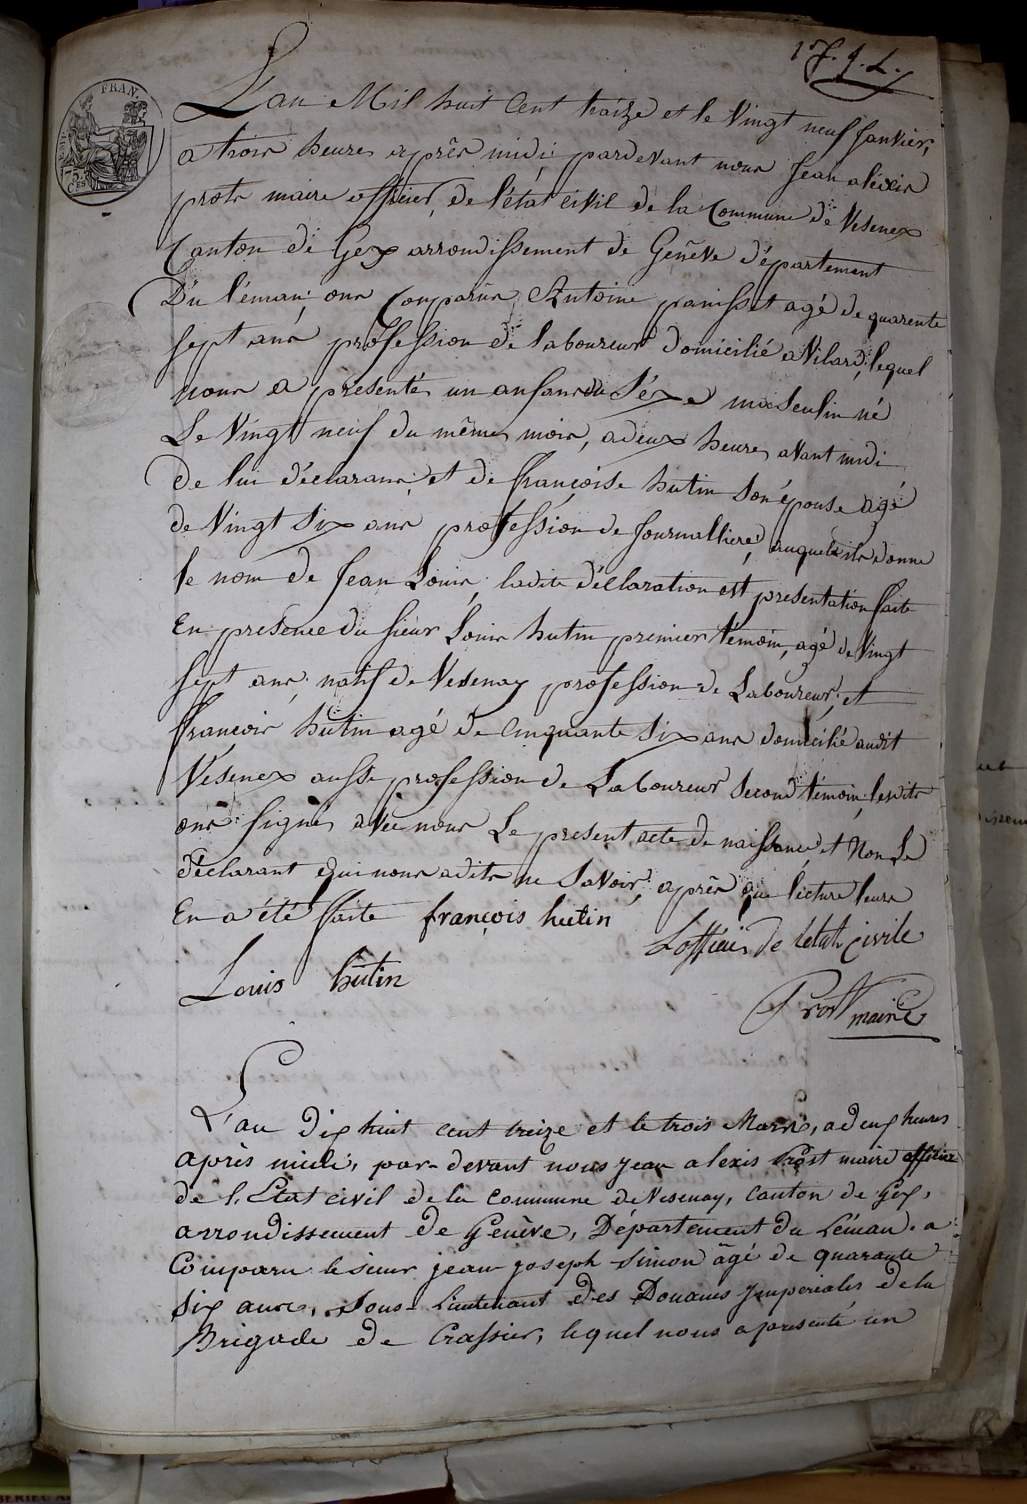 1 J. J. L.
FRAN.
75 C.ES
L'an Mil huit Cent traize et le Vingt neuf Janvier,
a trois heures après midi pardevant nous Jean alexis
prots maire officier de l'état civil de la Commune de Vesenex
Canton de Gex arrondissement de Genève département
Du l'éman; ons Comparus Antoine panisset agé de quarente
sept ans, profession de laboureur domicilié a Vilard, lequel
nous a présentés un anfans du séxe masculin né
Le Vingt neuf du même mois, a deux heures avant midi
de lui déclarans, et de françoise hutin son épouse agé
de Vingt six ans profession de Journalliere, auquel ils donne
le nom de Jean Louis, ladite déclaration est presentation faite
En presence du sieur Louis hutin premier témoin, agé de Vingt
sept ans, natif de Vesenay profession de Laboureur, et
françois hutin agé de Cinquante six ans domicilié audit
Vésenex aussi profession de Laboureur second témoin, lesdits
ons signés avec nous Le present acte de naissance et Non Le
déclarant qui nous a dits ne Savoir, après que lecture leurs
En a été faite françois hutin L'officier de l'état civile
Louis hutin
Prost maire
L'an dix huit cent treize et le trois Mars, a deux heures
après midi, par-devant nous jean alexis Prost maire officier
de l'Etat civil de la commune de Vesenay, canton de Gex,
arrondissement de Genève, Département du Léman. a
Comparu le sieur jean joseph Simon âgé de quarante
six ans, Sous-Lieutenant des Douanes Imperiales de la
Brigade de Crassier, lequel nous a presenté un